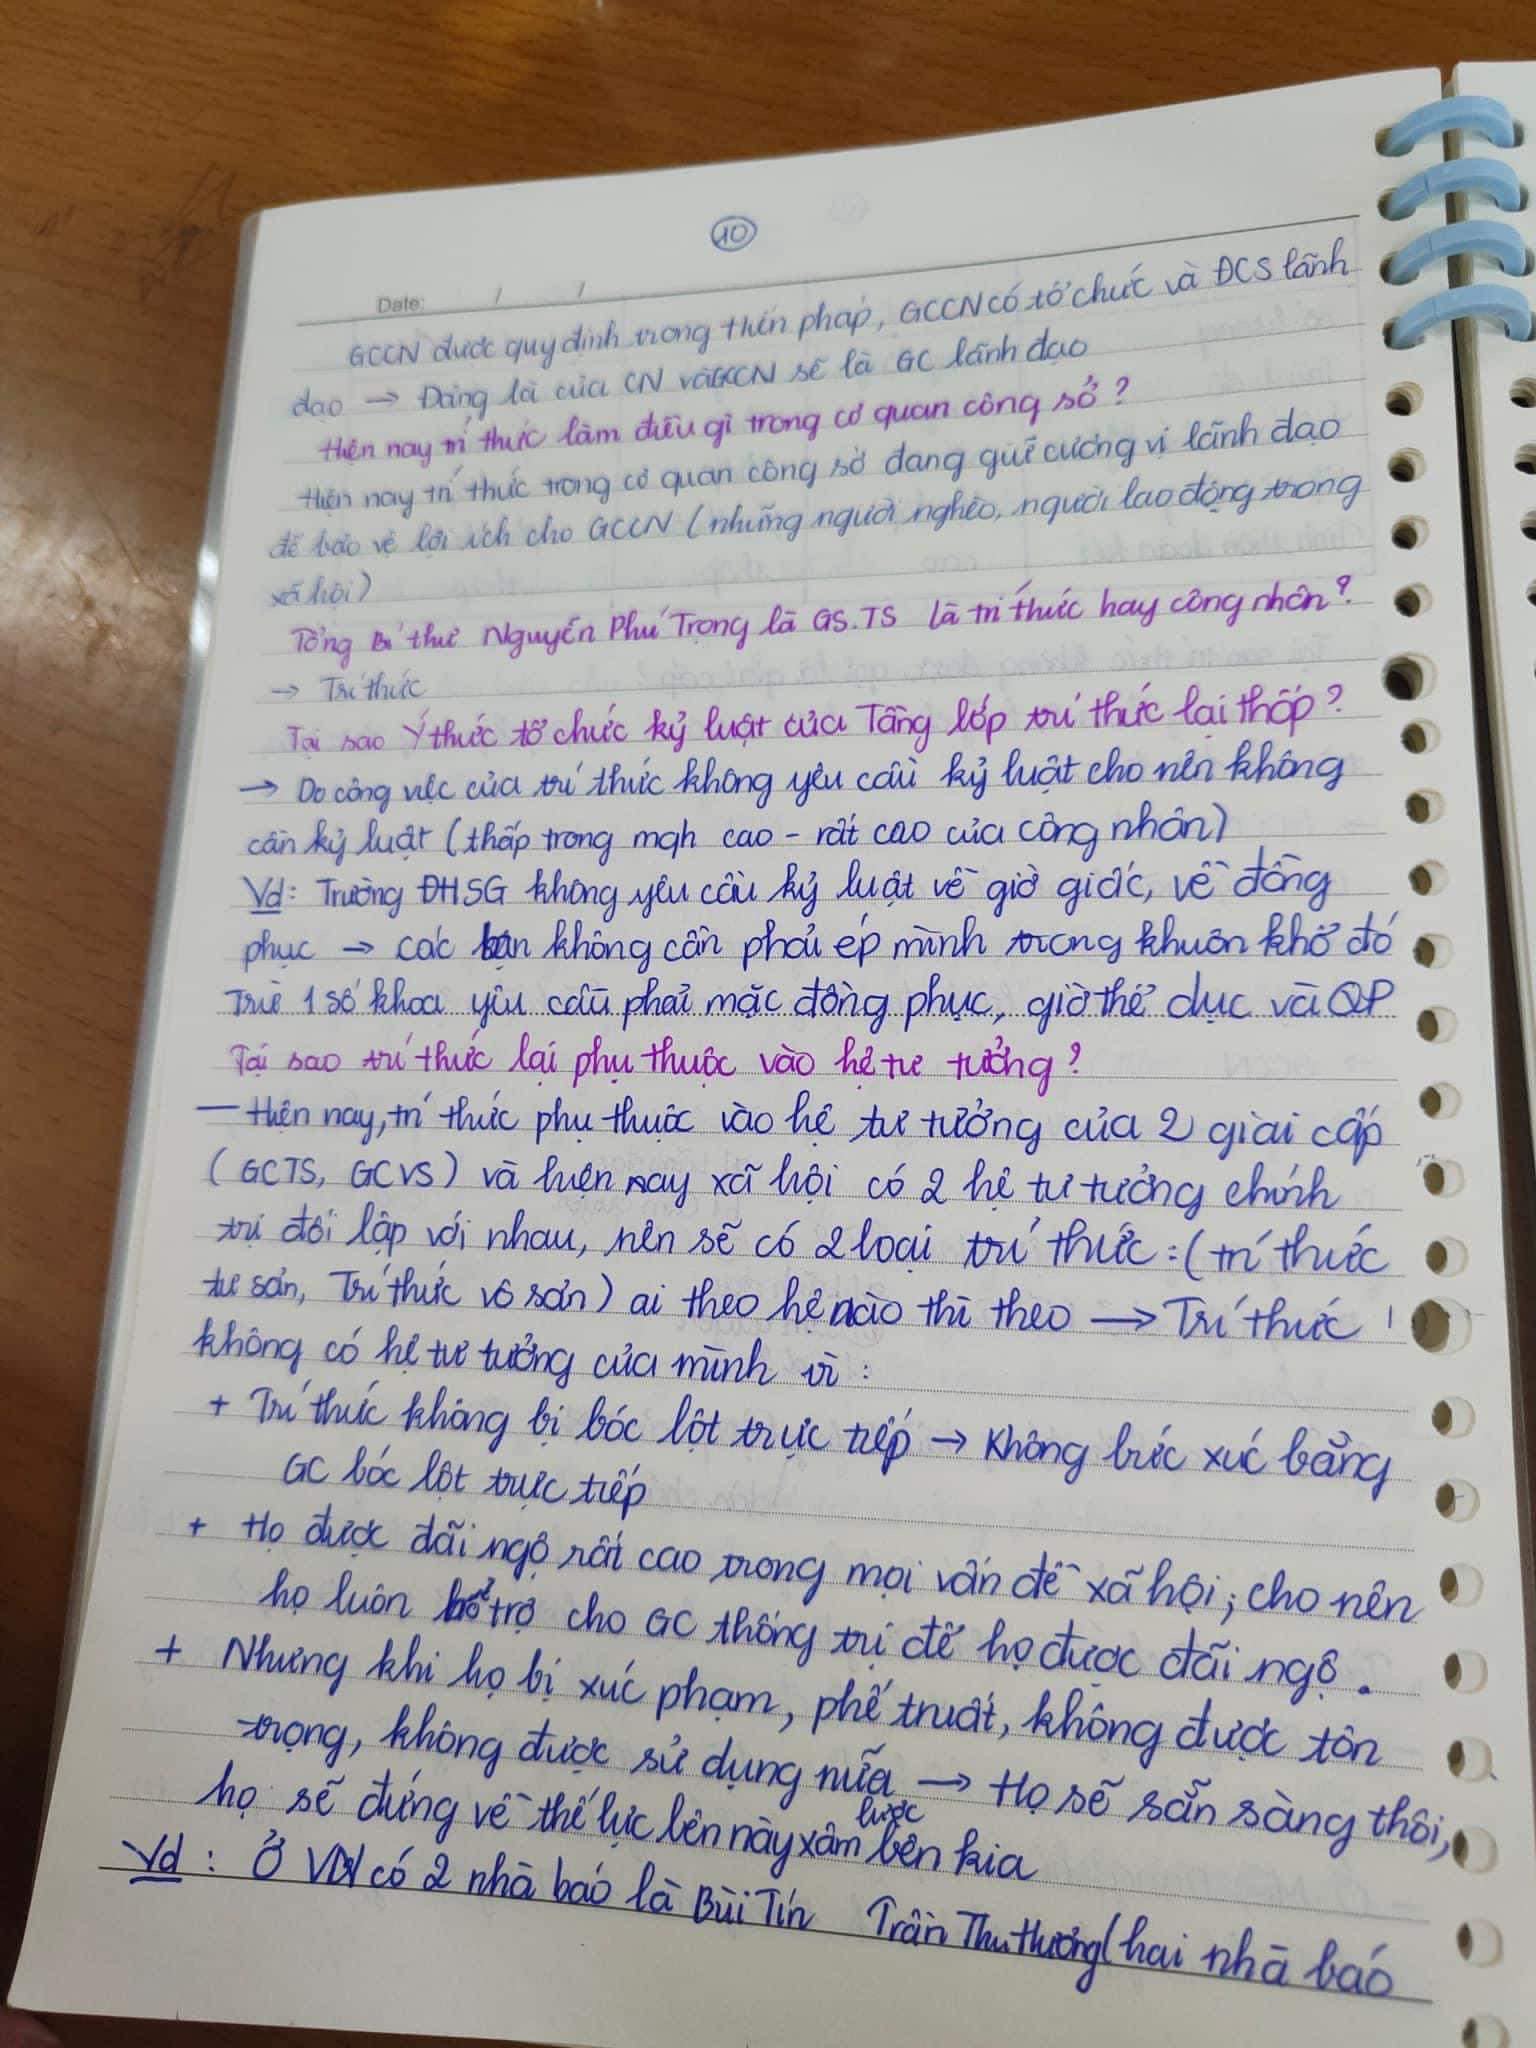 10
Date: / /
GCCN được quy định trong hiến pháp, GCCN có tổ chức và ĐCS lãnh
đạo → Đảng là của CN và GCCN sẽ là GC lãnh đạo
Hiện nay trí thức làm điều gì trong cơ quan công sở?
Hiện nay trí thức trong cơ quan công sở đang giữ cương vị lãnh đạo
để bảo vệ lợi ích cho GCCN (những người nghèo, người lao động trong
xã hội)
Tổng Bí thư Nguyễn Phú Trọng là GS.TS là trí thức hay công nhân?
→ Trí thức
Tại sao Ý thức tổ chức kỷ luật của Tầng lớp trí thức lại thấp?
→ Do công việc của trí thức không yêu cầu kỷ luật cho nên không
cần kỷ luật (thấp trong mqh cao - rất cao của công nhân)
Vd: Trường ĐHSG không yêu cầu kỷ luật về giờ giấc, về đồng
phục → các bạn không cần phải ép mình trong khuôn khổ đó
Trừ 1 số khoa yêu cầu phải mặc đồng phục, giờ thể dục và QP
Tại sao trí thức lại phụ thuộc vào hệ tư tưởng?
— Hiện nay, trí thức phụ thuộc vào hệ tư tưởng của 2 giai cấp
(GCTS, GCVS) và hiện nay xã hội có 2 hệ tư tưởng chính
trị đối lập với nhau, nên sẽ có 2 loại trí thức: (trí thức
tư sản, Trí thức vô sản) ai theo hệ nào thì theo → Trí thức
không có hệ tư tưởng của mình vì:
+ Trí thức không bị bóc lột trực tiếp → Không bức xúc bằng
GC bóc lột trực tiếp
+ Họ được đãi ngộ rất cao trong mọi vấn đề xã hội, cho nên
họ luôn bổ trợ cho GC thống trị để họ được đãi ngộ.
+ Nhưng khi họ bị xúc phạm, phế truất, không được tôn
trọng, không được sử dụng nữa → Họ sẽ sẵn sàng thôi,
họ sẽ đứng về thế lực bên này xâm lược bên kia
Vd: Ở VN có 2 nhà báo là Bùi Tín Trần Thu Hương (hai nhà báo